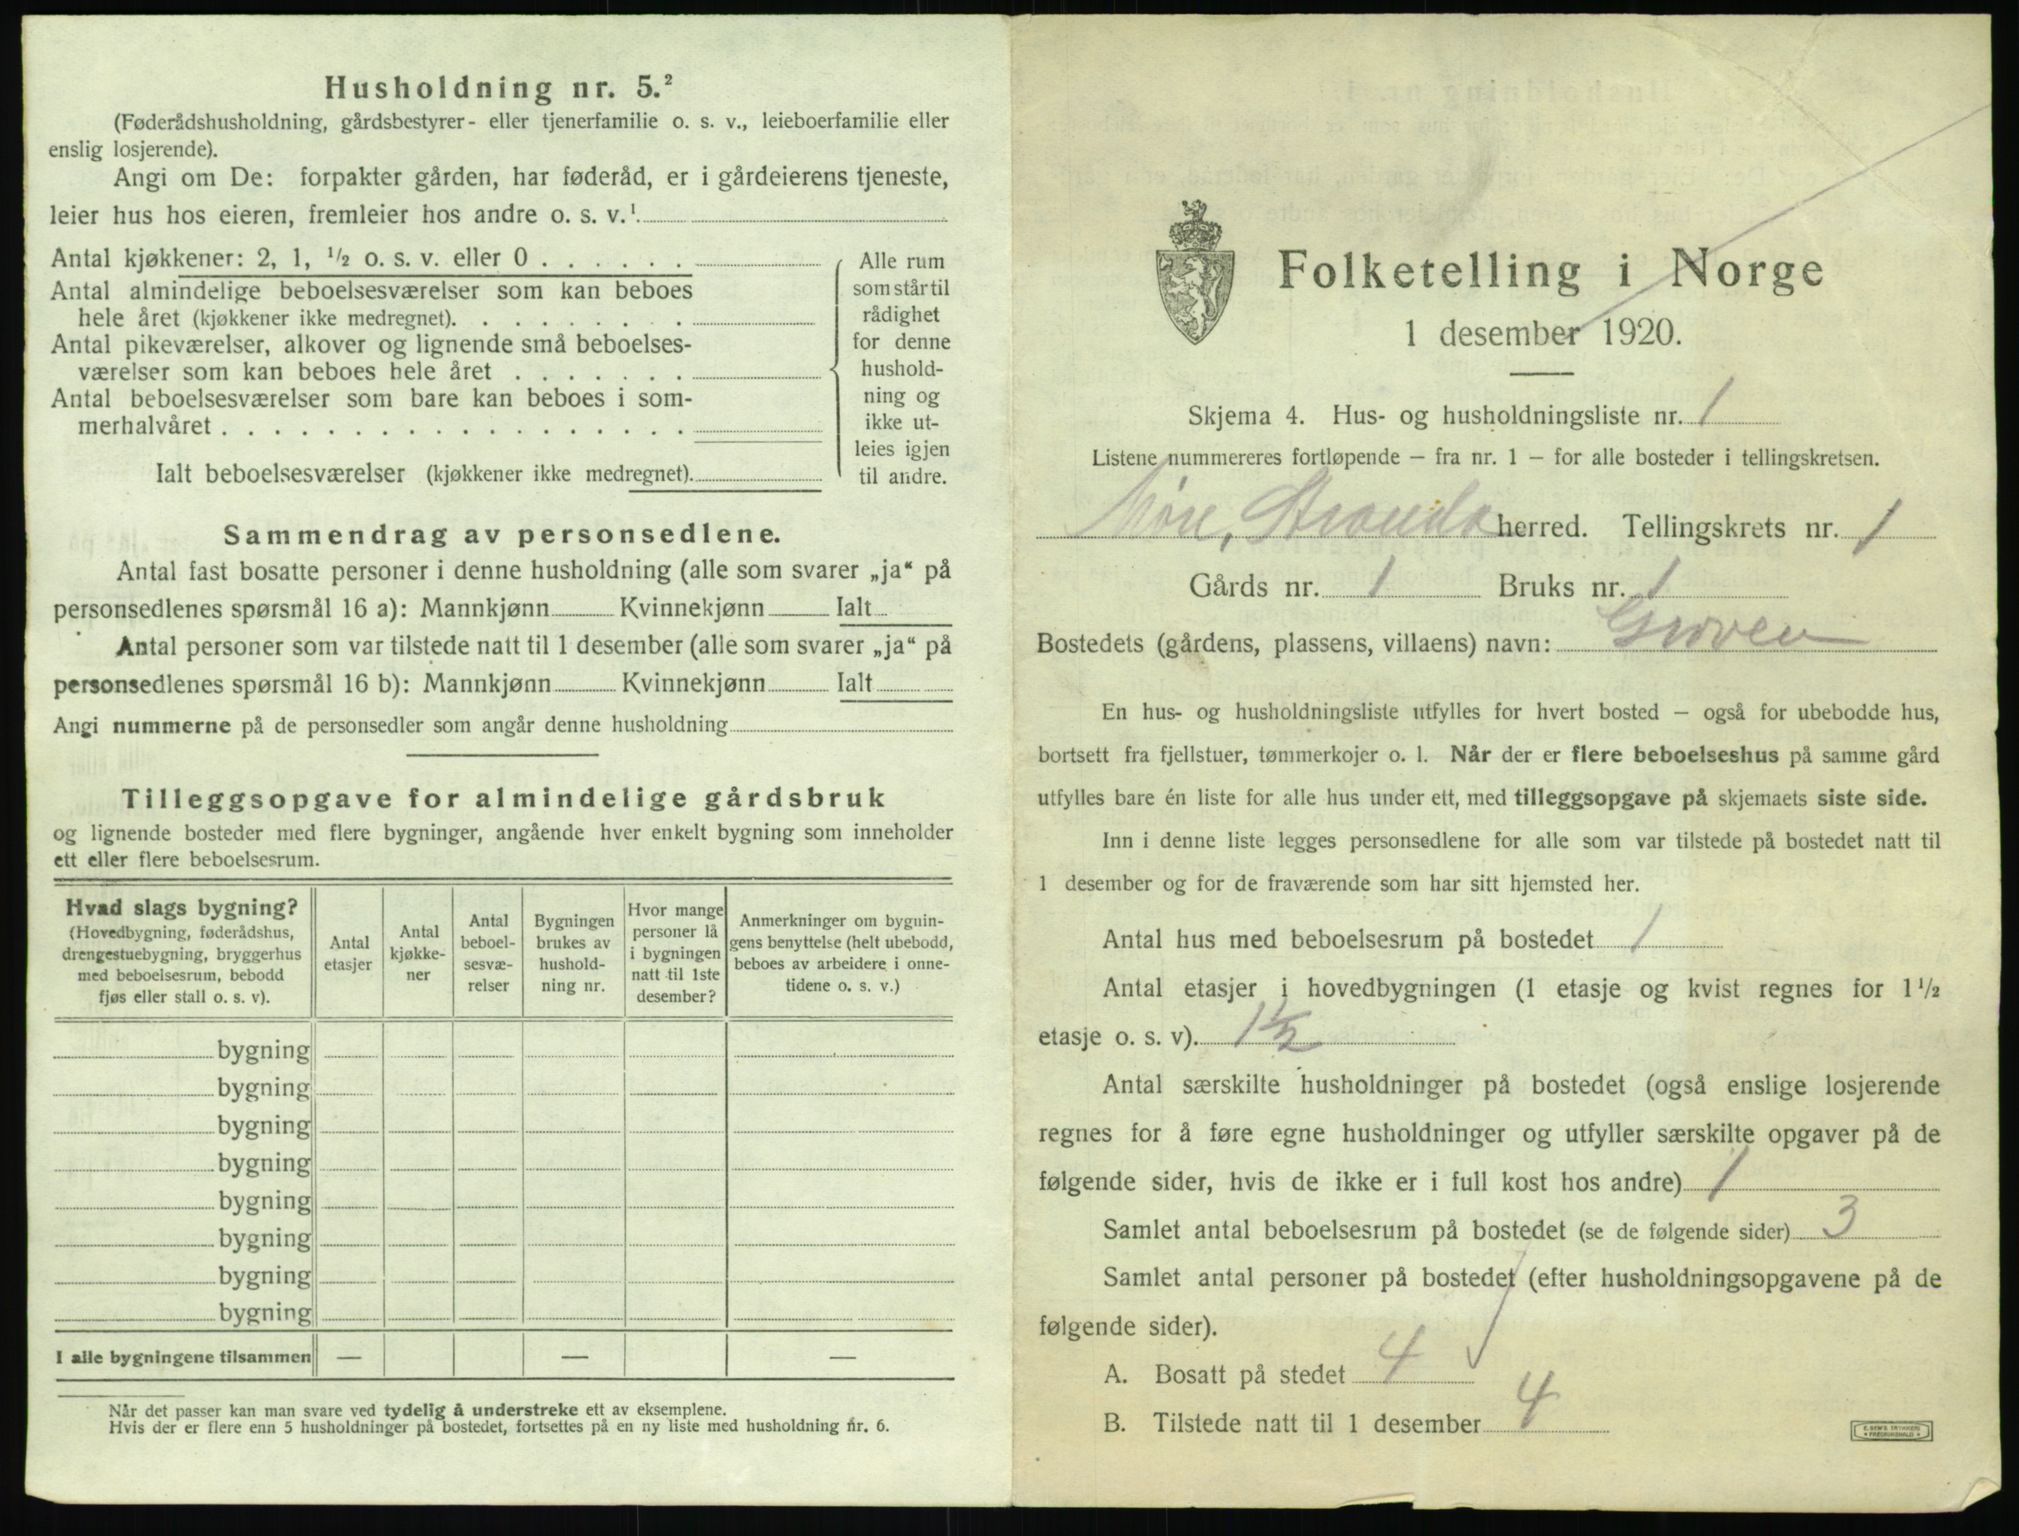 Husholdning nr. 5.²
(Føderådshusholdning, gårdsbestyrer- eller tjenerfamilie o. s. v., leieboerfamilie eller
enslig losjerende).
Angi om De: forpakter gården, har føderåd, er i gårdeierens tjeneste,
leier hus hos eieren, fremleier hos andre o. s. v.¹
Antal kjøkkener: 2, 1, ½ o. s. v. eller 0 . . . . . .
Antal almindelige beboelsesværelser som kan beboes
hele året (kjøkkener ikke medregnet). . . . . . . . .
Antal pikeværelser, alkover og lignende små beboelses-
værelser som kan beboes hele året . . . . . . .
Antal beboelsesværelser som bare kan beboes i som-
merhalvåret . . . . . . . . . . . . . . . . . .
Ialt beboelsesværelser (kjøkkener ikke medregnet).
Alle rum
som står til
rådighet
for denne
hushold-
ning og
ikke ut-
leies igjen
til andre.
Sammendrag av personsedlene.
Antal fast bosatte personer i denne husholdning (alle som svarer „ja“ på
personsedlenes spørsmål 16 a): Mannkjønn Kvinnekjønn Ialt
Antal personer som var tilstede natt til 1 desember (alle som svarer „ja“ på
personsedlenes spørsmål 16 b): Mannkjønn Kvinnekjønn Ialt
Angi nummerne på de personsedler som angår denne husholdning
Tilleggsopgave for almindelige gårdsbruk
og lignende bosteder med flere bygninger, angående hver enkelt bygning som inneholder
ett eller flere beboelsesrum.
Hvad slags bygning?
(Hovedbygning, føderådshus,
drengestuebygning, bryggerhus
med beboelsesrum, bebodd
fjøs eller stall o. s. v).
Antal
etasjer
Antal
kjøkke-
ner
Antal
beboel-
sesvæ-
relser
Bygningen
brukes av
hushold-
ning nr.
Hvor mange
personer lå
i bygningen
natt til 1ste
desember?
Anmerkninger om bygnin-
gens benyttelse (helt ubebodd,
beboes av arbeidere i onne-
tidene o. s. v.)
bygning
bygning
bygning
bygning
bygning
bygning
bygning
bygning
I alle bygningene tilsammen — — —
Når det passer kan man svare ved tydelig å understreke ett av eksemplene.
Hvis der er flere enn 5 husholdninger på bostedet, fortsettes på en ny liste med husholdning nr. 6.
Folketelling i Norge
1 desember 1920.
Skjema 4. Hus- og husholdningsliste nr. 1
Listene nummereres fortløpende – fra nr. 1 – for alle bosteder i tellingskretsen.
Møre, Stranda herred. Tellingskrets nr. 1
Gårds nr. 1 Bruks nr. 1
Bostedets (gårdens, plassens, villaens) navn: Groven
En hus- og husholdningsliste utfylles for hvert bosted – også for ubebodde hus,
bortsett fra fjellstuer, tømmerkojer o. l. Når der er flere beboelseshus på samme gård
utfylles bare én liste for alle hus under ett, med tilleggsopgave på skjemaets siste side.
Inn i denne liste legges personsedlene for alle som var tilstede på bostedet natt til
1 desember og for de fraværende som har sitt hjemsted her.
Antal hus med beboelsesrum på bostedet 1
Antal etasjer i hovedbygningen (1 etasje og kvist regnes for 1½
etasje o. s. v). 1½
Antal særskilte husholdninger på bostedet (også enslige losjerende
regnes for å føre egne husholdninger og utfyller særskilte opgaver på de
følgende sider, hvis de ikke er i full kost hos andre) 1
Samlet antal beboelsesrum på bostedet (se de følgende sider) 3
Samlet antal personer på bostedet (efter husholdningsopgavene på de
følgende sider).
A. Bosatt på stedet 4
B. Tilstede natt til 1 desember 4